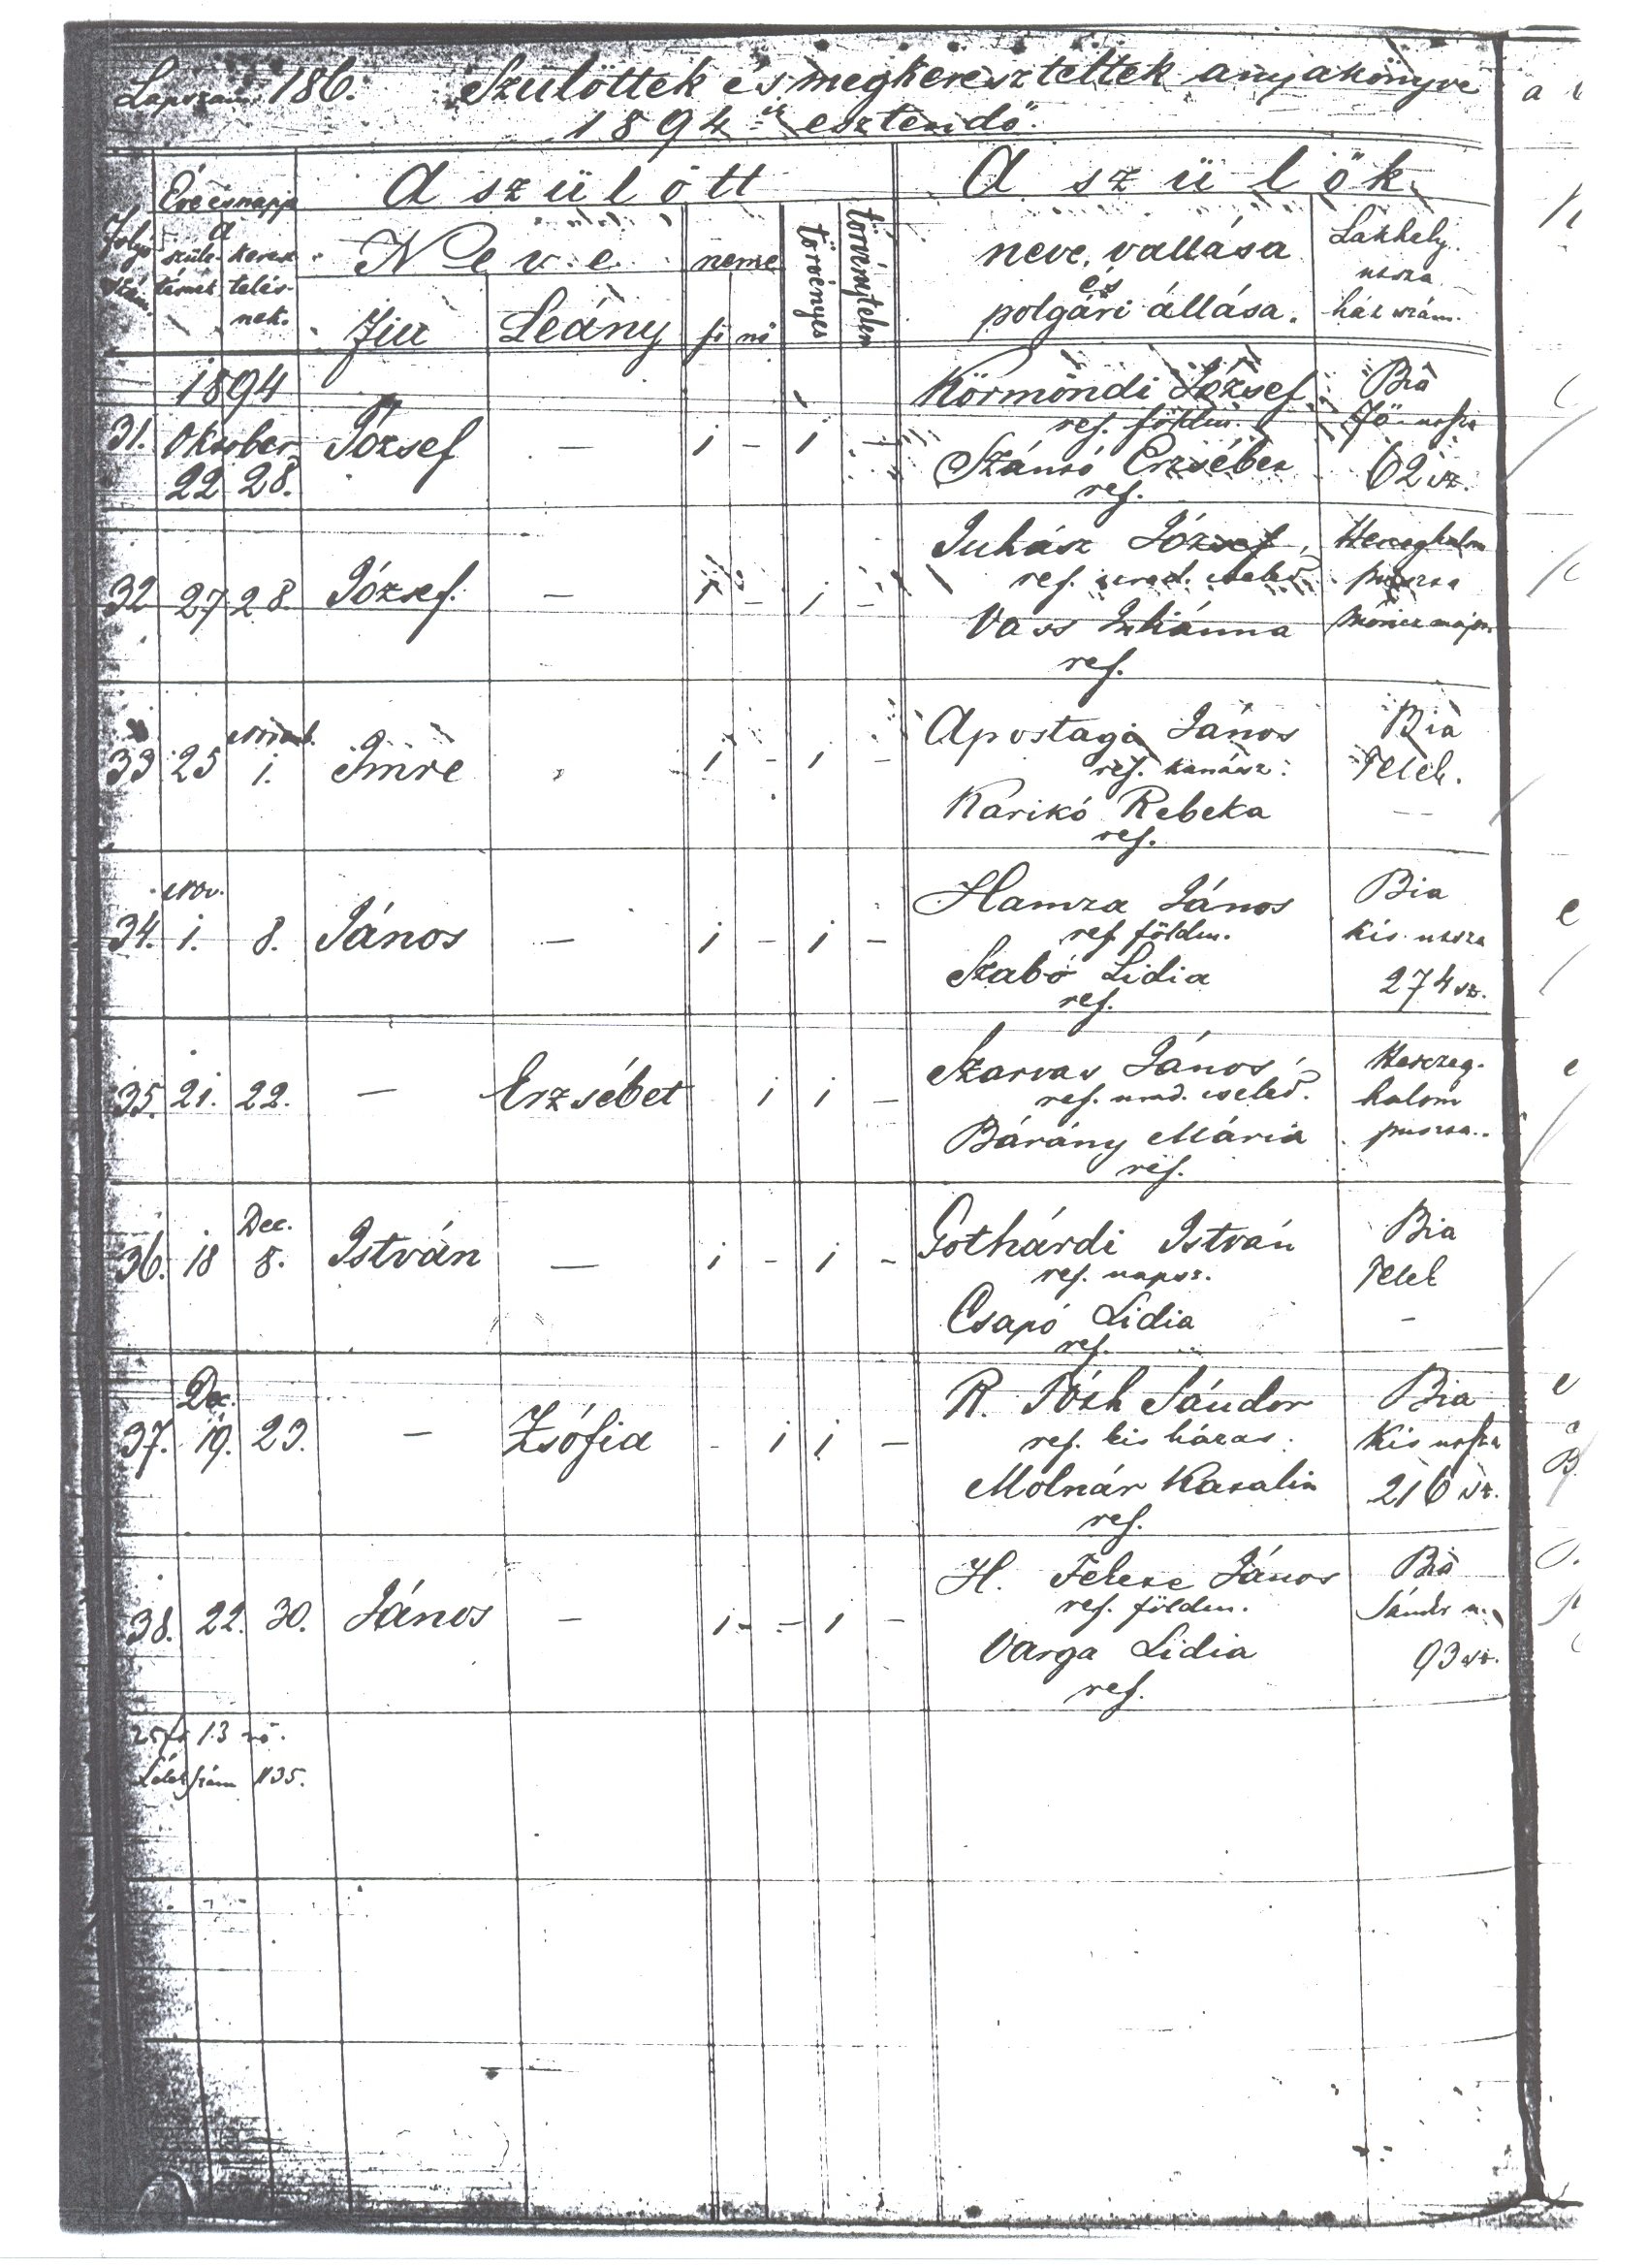 Lapszám 186. Szülöttek és megkereszteltek anyakönyve
1894-ik esztendő.
Folyó szám
Év és napja
a
szüle- tésnek
keresz- telés- nek.
A szülött
Neve
Fiu
Leány
neme
fi nő
törvényes
törvénytelen
A szülők
neve, vallása
és
polgári állása.
Lakhely.
utsza
ház szám.
1894
31. Oktober 22 28. József — i - i - Körmöndi József
ref. földm.
Szántó Erzsébet
ref.
Bia
Fő utsza
62 sz.
32 27 28. József. — i - i - Juhász József
ref. urad. cseled
Vass Juliánna
ref.
Herceghalom
puszta
Móricz major
33 25 Novemb. 1. Imre i - i - Apostagi János
ref. kanász.
Karikó Rebeka
ref.
Bia
Telek.
—
34. Nov. 1. 8. János — i - i - Hamza János
ref. földm.
Szabó Lidia
ref.
Bia
Kis utsza
274 sz.
35. 21. 22. — Erzsébet i i - Szarvas János
ref. urad. cseled.
Bárány Mária
ref.
Herczeg-
halom
puszta.
36. 18 Dec. 8. István — i - i - Gothárdi István
ref. napsz.
Csapó Lidia
ref.
Bia
Telek
-
37. Dec. 19. 23. — Zsófia - i i — R. Tóth Sándor
ref. kis házas.
Molnár Katalin
ref.
Bia
Kis utsza
216 sz.
38. 22. 30. János — i - - i - H. Fekete János
ref. földm.
Varga Lidia
ref.
Bia
Sándor u.
93 sz.
25 fi 13 nő.
Lélekszám 1135.